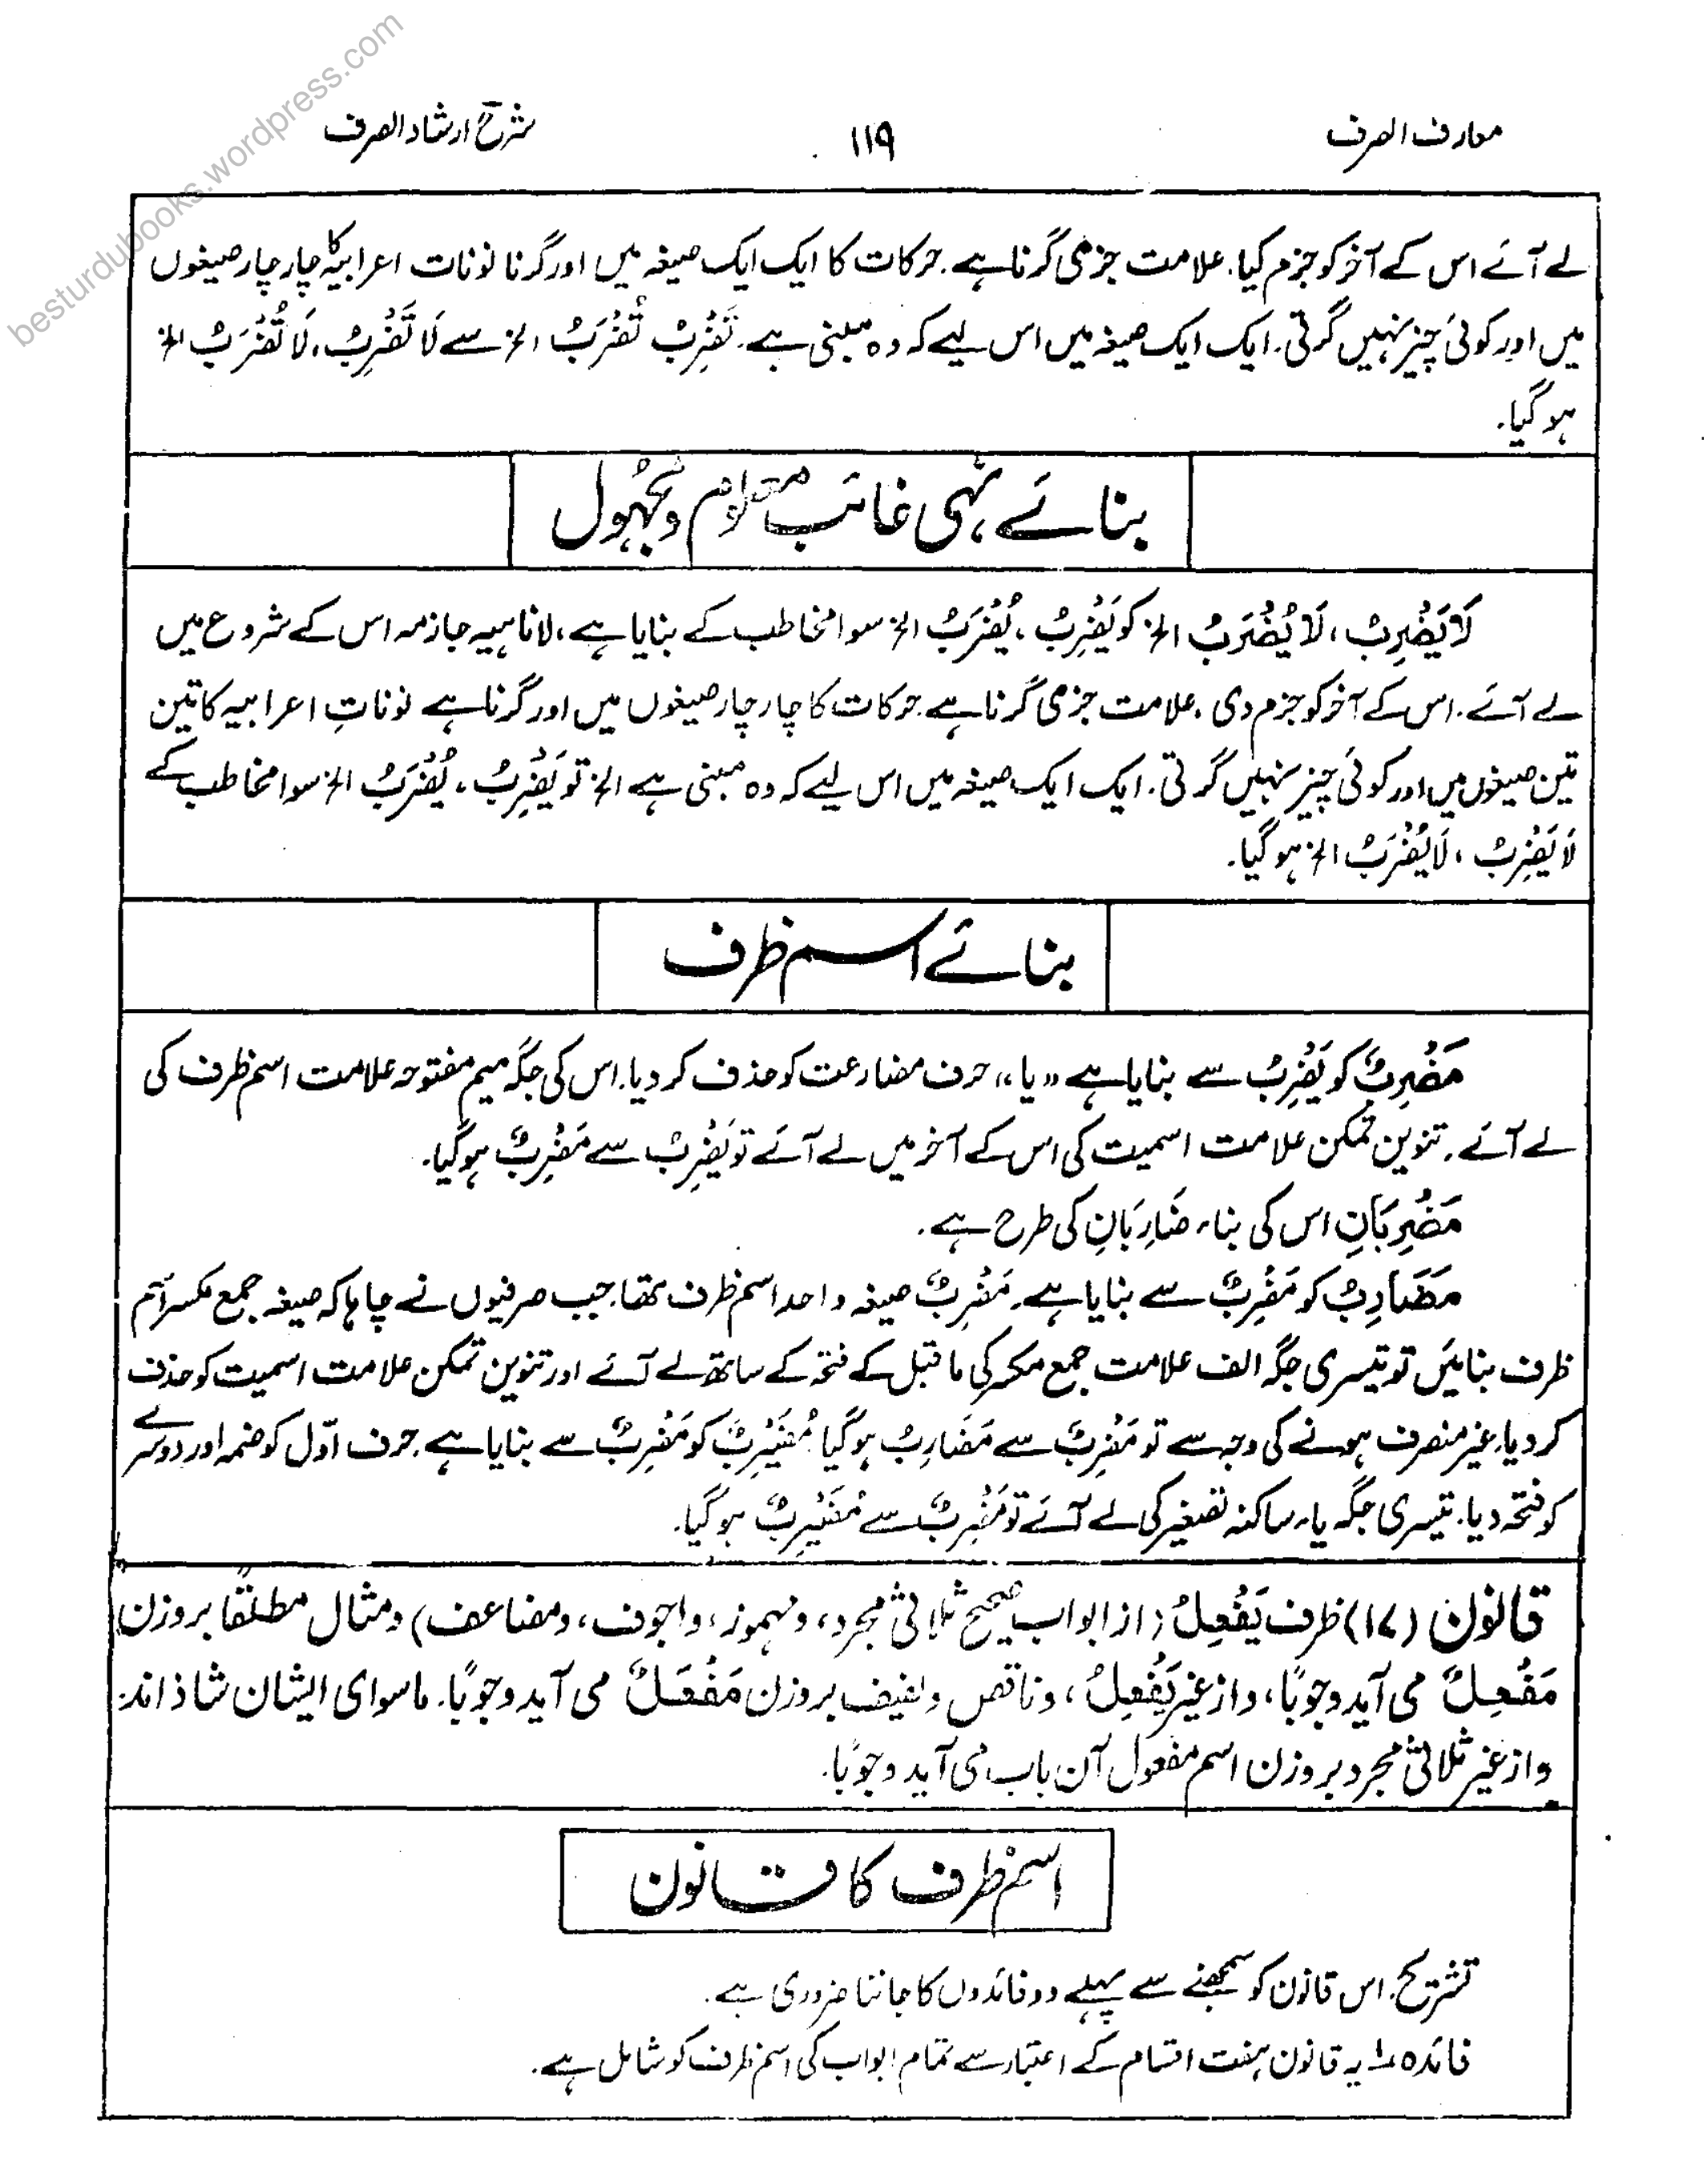 besturdubooks.wordpress.com
معارف الصرف ۱۱۹ شرح ارشاد الصرف
لے آئے اس کے آخر کو جزم کیا۔ علامت جزمی گرنا ہے۔ حرکات کا ایک ایک صیغہ میں اور گرنا نونات اعرابیہ کا چار چار صیغوں
میں اور کوئی چیز نہیں گرتی۔ ایک ایک صیغہ میں اس لیے کہ وہ مبنی ہے۔ تَضْرِبُ تُضْرَبُ الخ سے لَا تَضْرِبْ، لَا تُضْرَبْ الخ
ہو گیا۔
بنائے نہی غائب معلوم و مجہول
لَا يَضْرِبْ، لَا يُضْرَبْ الخ کو يَضْرِبُ، يُضْرَبُ الخ سوا مخاطب کے بنایا ہے، لا ناہیہ جازمہ اس کے شروع میں
لے آئے۔ اس کے آخر کو جزم دی، علامت جزمی گرنا ہے حرکات کا چار چار صیغوں میں اور گرنا ہے نوناتِ اعرابیہ کا تین
تین صیغوں میں اور کوئی چیز نہیں گرتی۔ ایک ایک صیغہ میں اس لیے کہ وہ مبنی ہے الخ تو يَضْرِبُ، يُضْرَبُ الخ سوا مخاطب کے
لَا يَضْرِبْ، لَا يُضْرَبْ الخ ہو گیا۔
بنائے اسم ظرف
مَضْرِبٌ کو يَضْرِبُ سے بنایا ہے ”یا“ حرف مضارعت کو حذف کر دیا۔ اس کی جگہ میم مفتوحہ علامت اسم ظرف کی
لے آئے۔ تنوین تمکن علامت اسمیت کی اس کے آخر میں لے آئے تو يَضْرِبُ سے مَضْرِبٌ ہو گیا۔
مَضْرِبَانِ اس کی بناء ضَارِبَانِ کی طرح ہے۔
مَضَارِبُ کو مَضْرِبٌ سے بنایا ہے۔ مَضْرِبٌ صیغہ واحد اسم ظرف تھا۔ جب صرفیوں نے چاہا کہ صیغہ جمع مکسر اسم
ظرف بنائیں تو تیسری جگہ الف علامت جمع مکسر کی ماقبل کے فتحہ کے ساتھ لے آئے اور تنوین تمکن علامت اسمیت کو حذف
کر دیا۔ غیر منصرف ہونے کی وجہ سے تو مَضْرِبٌ سے مَضَارِبُ ہو گیا مُضَيْرِبٌ کو مَضْرِبٌ سے بنایا ہے۔ حرف اوّل کو ضمہ اور دوسرے
کو فتحہ دیا۔ تیسری جگہ یاء ساکنہ تصغیر کی لے آئے تو مَضْرِبٌ سے مُضَيْرِبٌ ہو گیا۔
قانون (۱۷) ظرف يَفْعِلُ (از ابواب صحیح ثلاثی مجرد، و مہموز، و اجوف، و مضاعف) و مثال مطلقًا بروزن
مَفْعِلٌ می آید وجوبًا، و از غیر يَفْعِلُ، و ناقص و لفیف بروزن مَفْعَلٌ می آید وجوبًا۔ ماسوای ایشان شاذ اند
و از غیر ثلاثی مجرد بروزن اسم مفعول آن باب می آید وجوبًا۔
اسم ظرف کا قانون
تشریح۔ اس قانون کو سمجھنے سے پہلے دو فائدوں کا جاننا ضروری ہے۔
فائدہ ۱ یہ قانون ہفت اقسام کے اعتبار سے تمام ابواب کی اسم ظرف کو شامل ہے۔